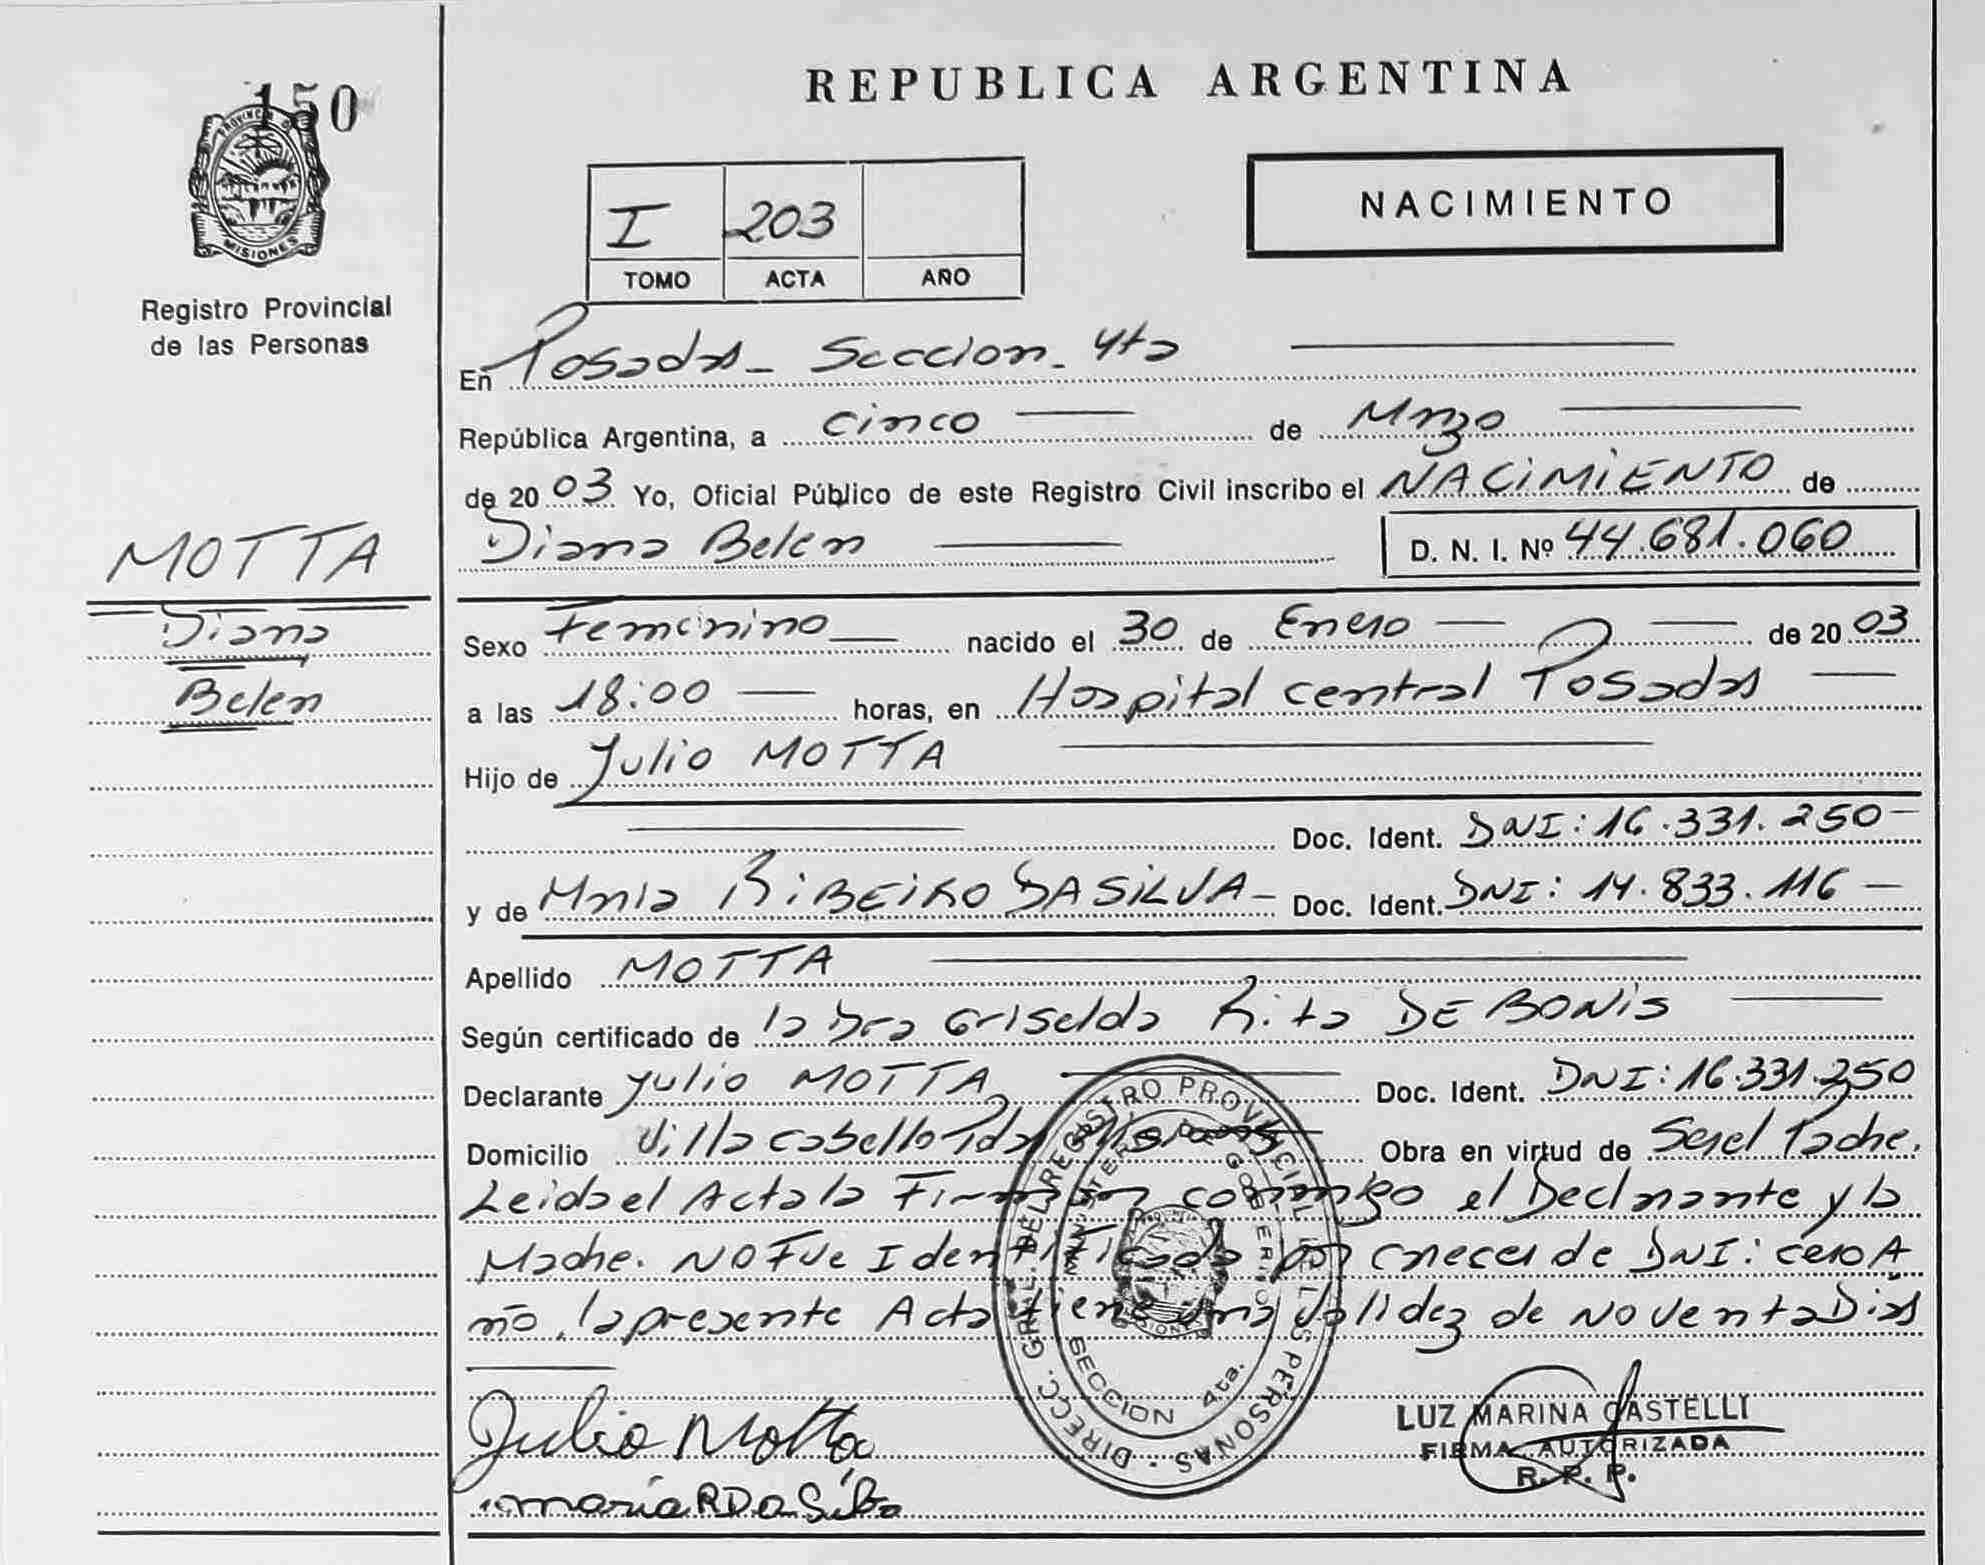 150
PROVINCIA DE
MISIONES
Registro Provincial
de las Personas
MOTTA
Diana
Belen
REPUBLICA ARGENTINA
I 203
TOMO ACTA AÑO
NACIMIENTO
En Posadas - Seccion - 4ta
República Argentina, a cinco de Marzo
de 2003 Yo, Oficial Público de este Registro Civil inscribo el NACIMIENTO de
Diana Belen D. N. I. Nº 44.681.060
Sexo Femenino nacido el 30 de Enero de 2003
a las 18:00 horas, en Hospital central Posadas
Hijo de Julio MOTTA
Doc. Ident. DNI: 16.331.250-
y de Maria RIBEIRO DA SILVA- Doc. Ident. DNI: 14.833.116-
Apellido MOTTA
Según certificado de la Dra Griselda Rita DE BONIS
Declarante Julio MOTTA Doc. Ident. DNI: 16.331.250
Domicilio Villa cabello Pdas Obra en virtud de Ser el Padre.
Leida el Acta la Firman conmigo el Declarante y la
Madre. NO FUE Identificada por carecer de DNI: cero A
ño, la presente Acta tiene una validez de Noventa Dias
DIRECC. GRAL. DEL REGISTRO PROVINCIAL DE LAS PERSONAS
MINISTERIO DE GOBIERNO
SECCION 4ta.
MISIONES
Julio Motta
maria R Da Silva
LUZ MARINA CASTELLI
FIRMA AUTORIZADA
R. P. P.